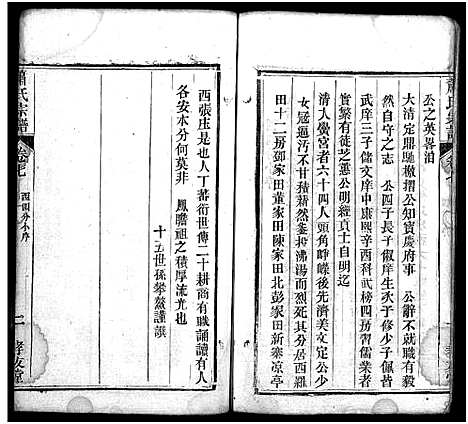 公之英畧洎
大清定鼎馳檄摺公知寶慶府事 公辭不就職有毅
然自守之志 公四子長子儼庠生次子侃庠生四子
武庠三子儲文庠中康熙辛酉科武榜四房習儒業者
實繁有徒芝蕙公明經貢士自明迄
清入黌宮者六十四人頭角崢嶸後先濟美文定公少
女冠逼污不甘積薪然釜抑沸湯而烈死其分居西羅
田十二房鄧家田袁家田陳家田北彭家田新寨凉亭
西張庄是也人丁蕃衍世傳二十耕商有職誦讀有人
各安本分何莫非 鳳瞻祖之積厚流光也
十五世孫攀鰲謹譔
蕭氏宗譜
卷七
西田分小序
二
孝友堂